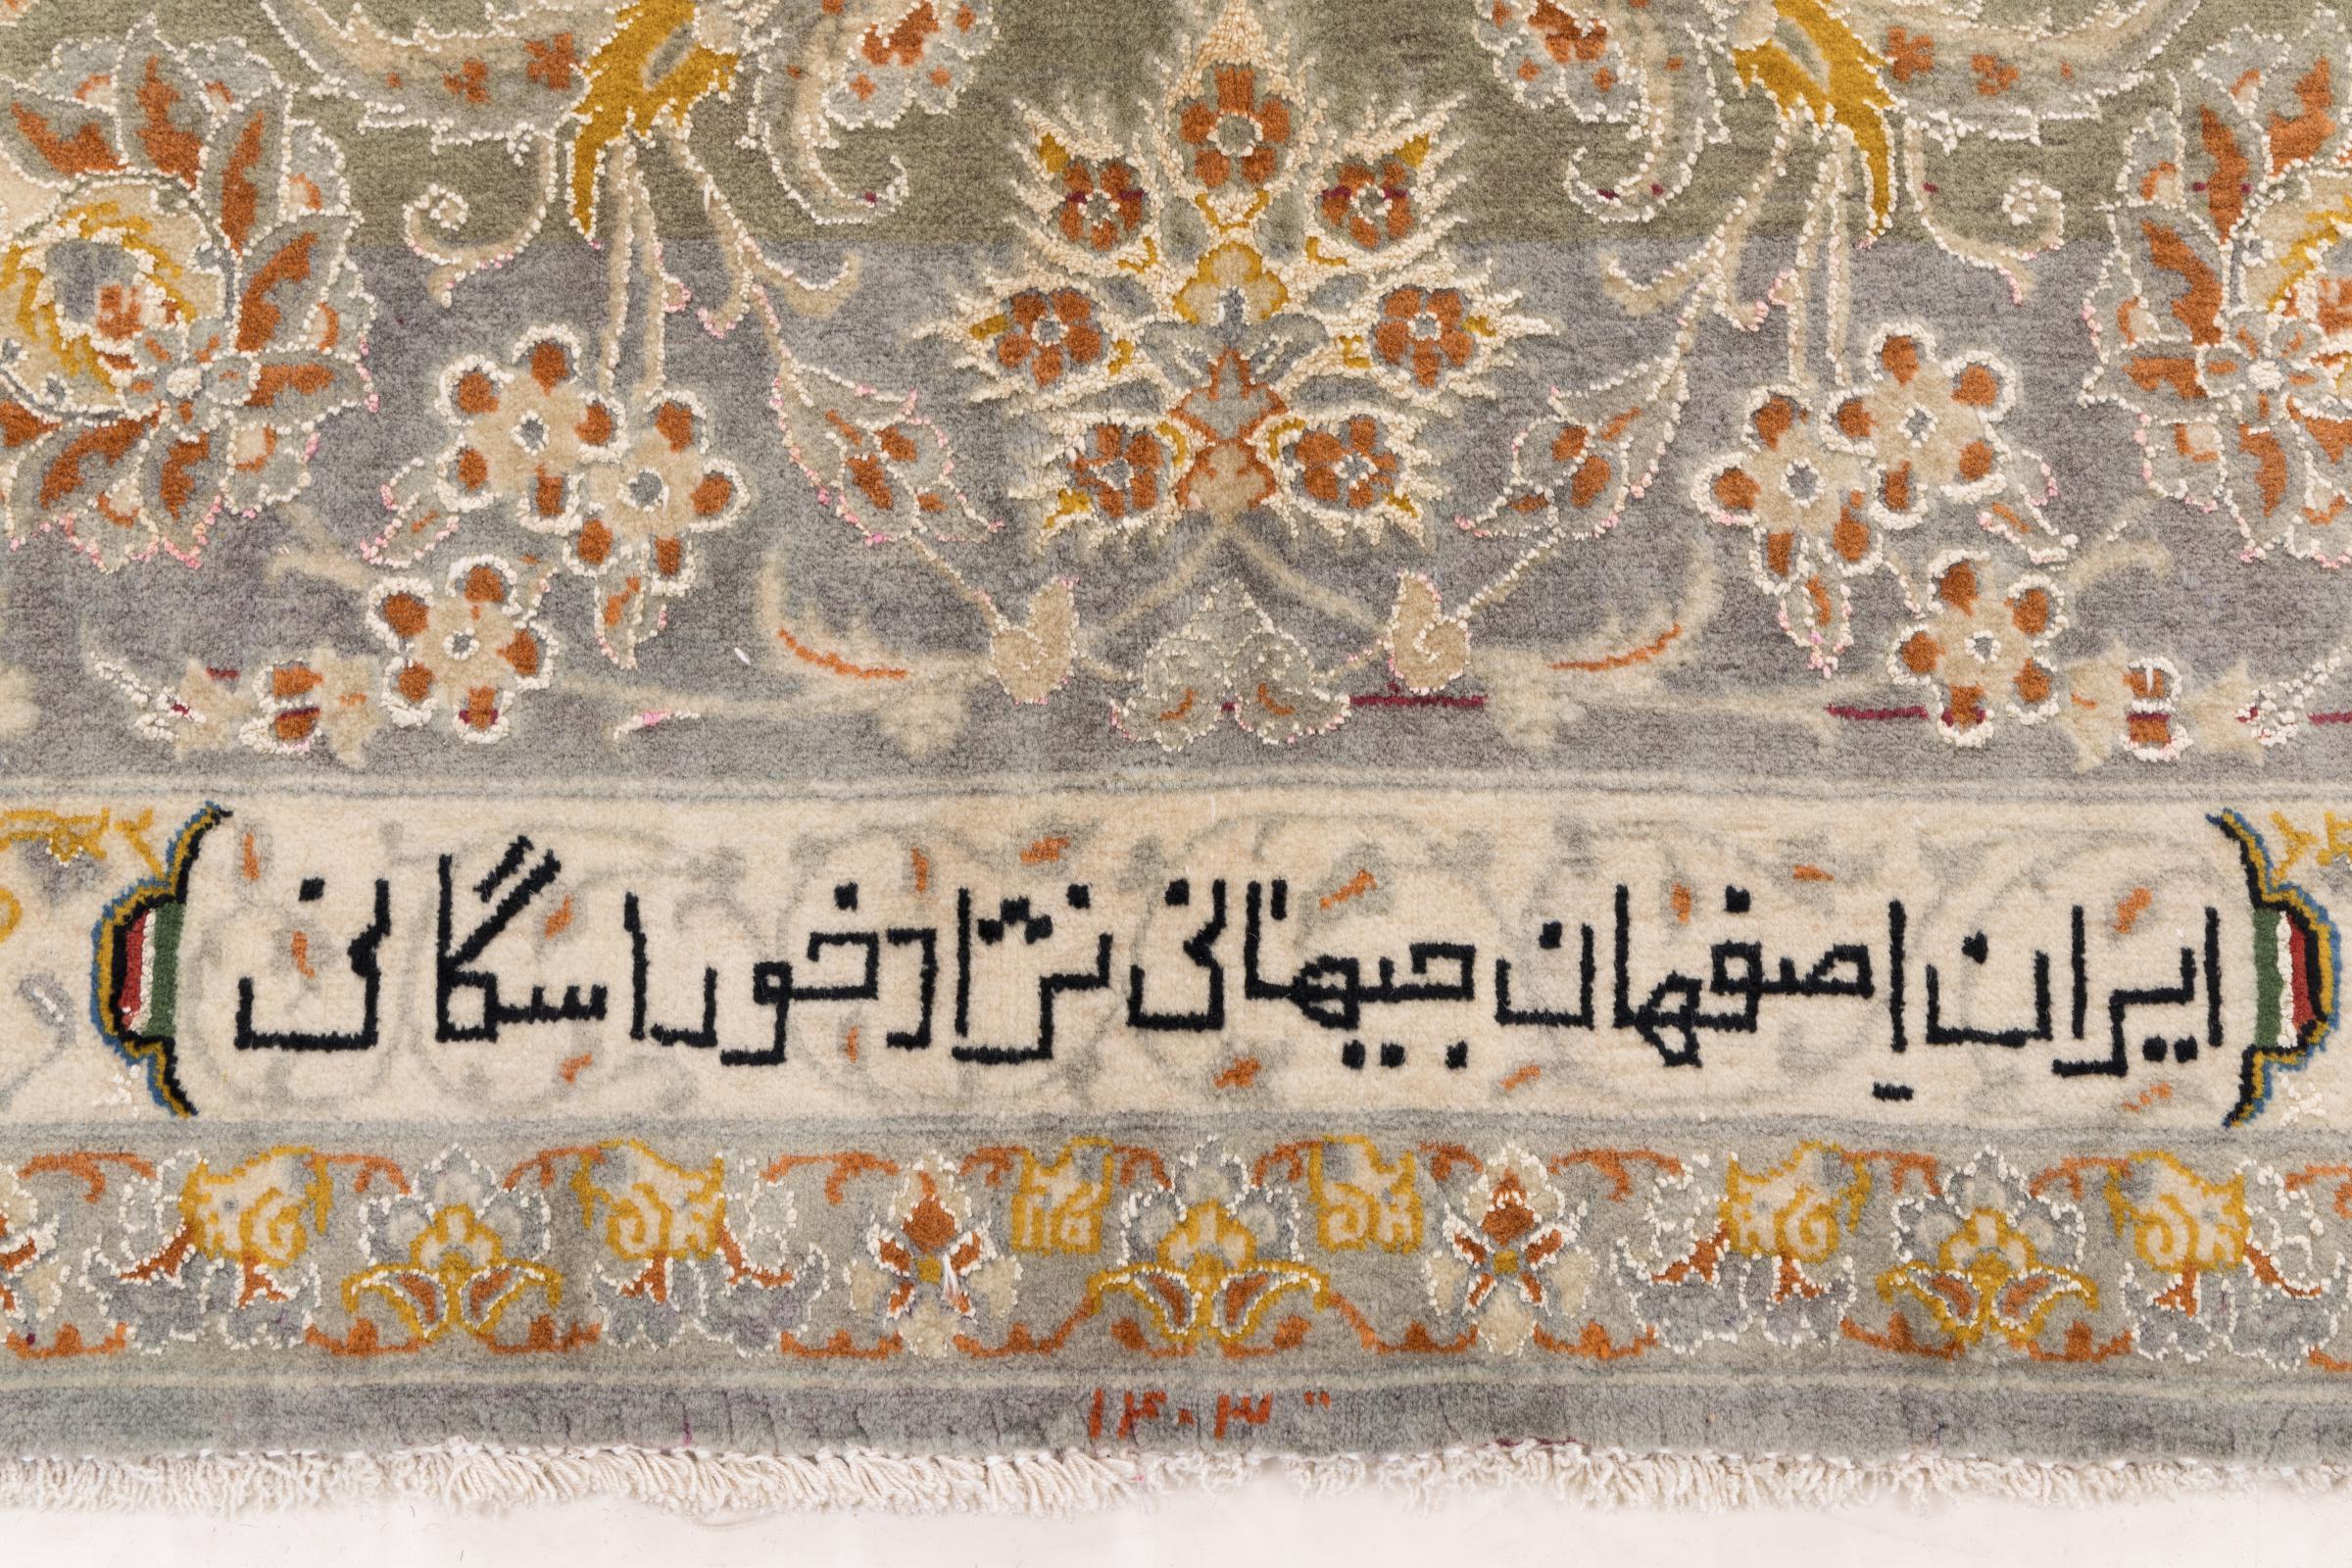 ایران اِصفهان جیهانی نژاد خوراسگانی
۱۴۰۳